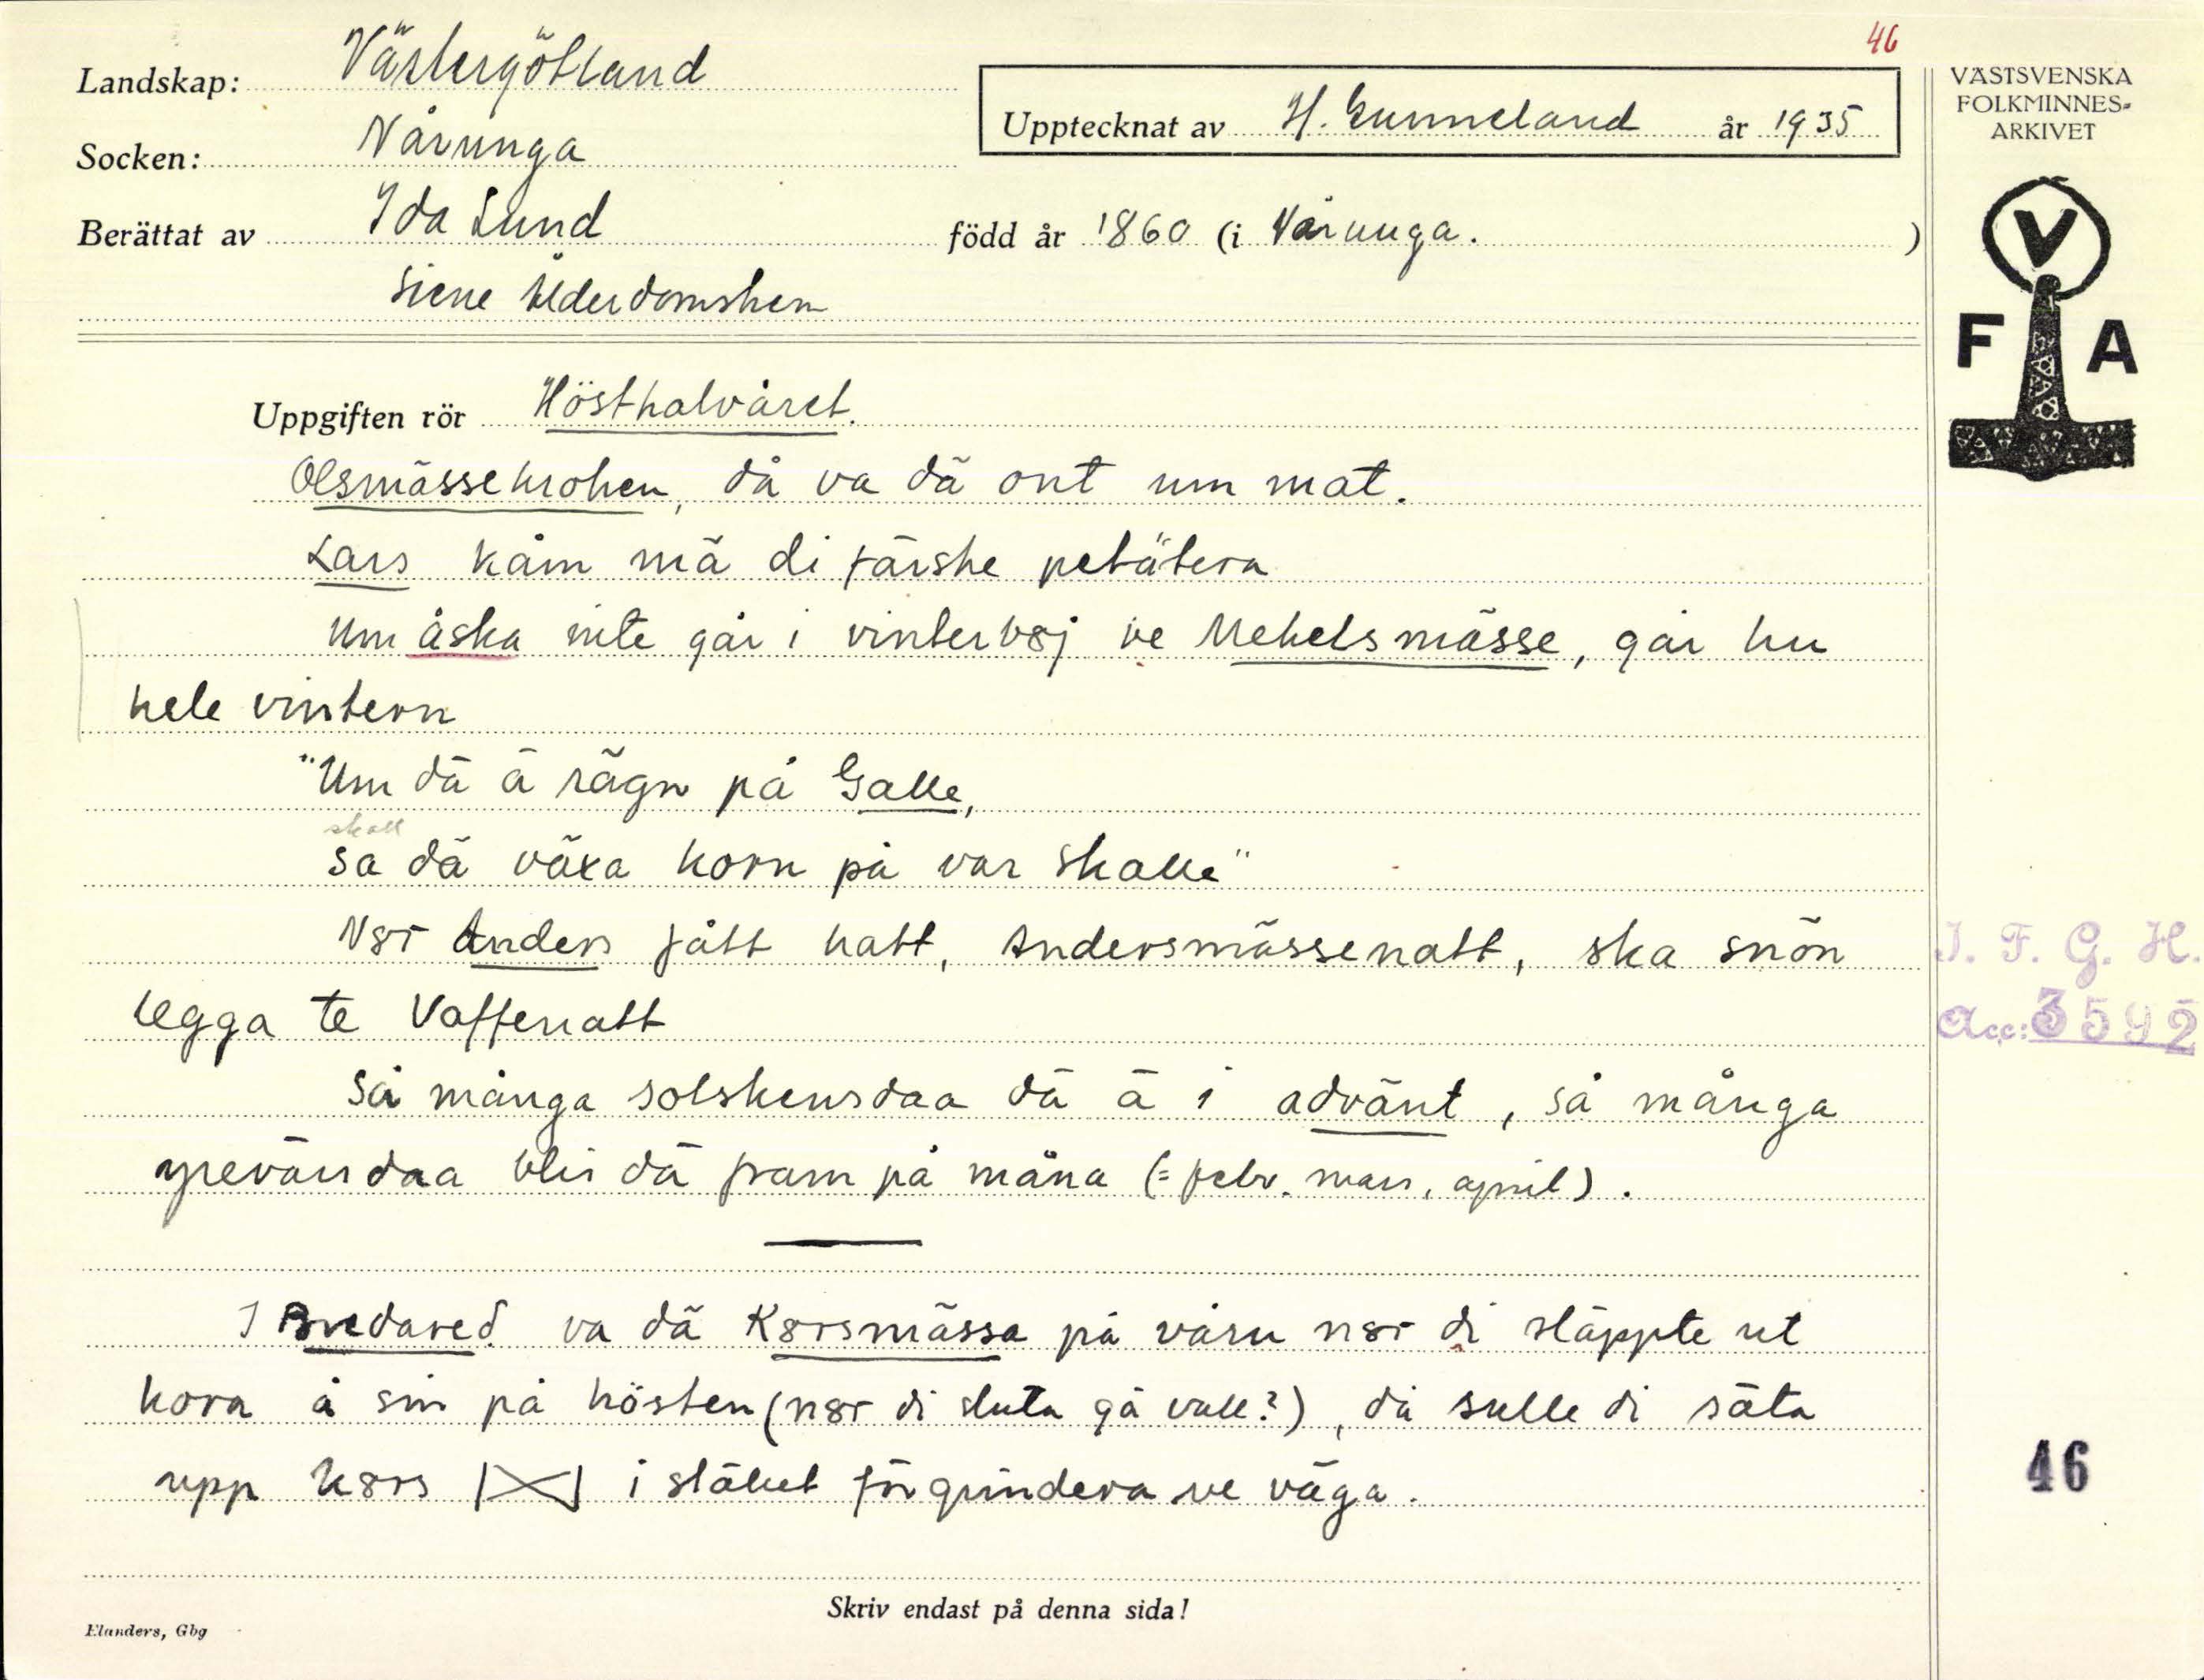 46
Landskap: Västergötland
Upptecknat av H. Gunneland år 1935
VÄSTSVENSKA
FOLKMINNES-
ARKIVET
Socken: Nårunga
Berättat av Ida Lund född år 1860 (i Nårunga. )
Siene Ålderdomshem
V
F A
Uppgiften rör Hösthalvåret.
Olsmässekroken, då va dä ont um mat.
Lars kåm mä di färske petätera
Um åska inte går i vinter i ve Mekelsmässe, går hu
hele vintern
"Um dä ä rägn på Galle,
skall
sa dä växa korn på var skalle"
Nör Anders fått natt, Andersmässenatt, ska snön
legga te Vaffenatt
I. F. G. H.
Acc: 3592
Så många solskensdaa dä ä i advänt, så många
yrevärsdaa blir dä fram på måna (= febr. mars, april).
I Bredared va dä Körsmässa på våru nör di släppte ut
kora å sin på hösten (nör di sluta gå vall?), då sulle di säta
upp körs i stäket för grindera ve väga.
46
Skriv endast på denna sida!
Elanders, Gbg